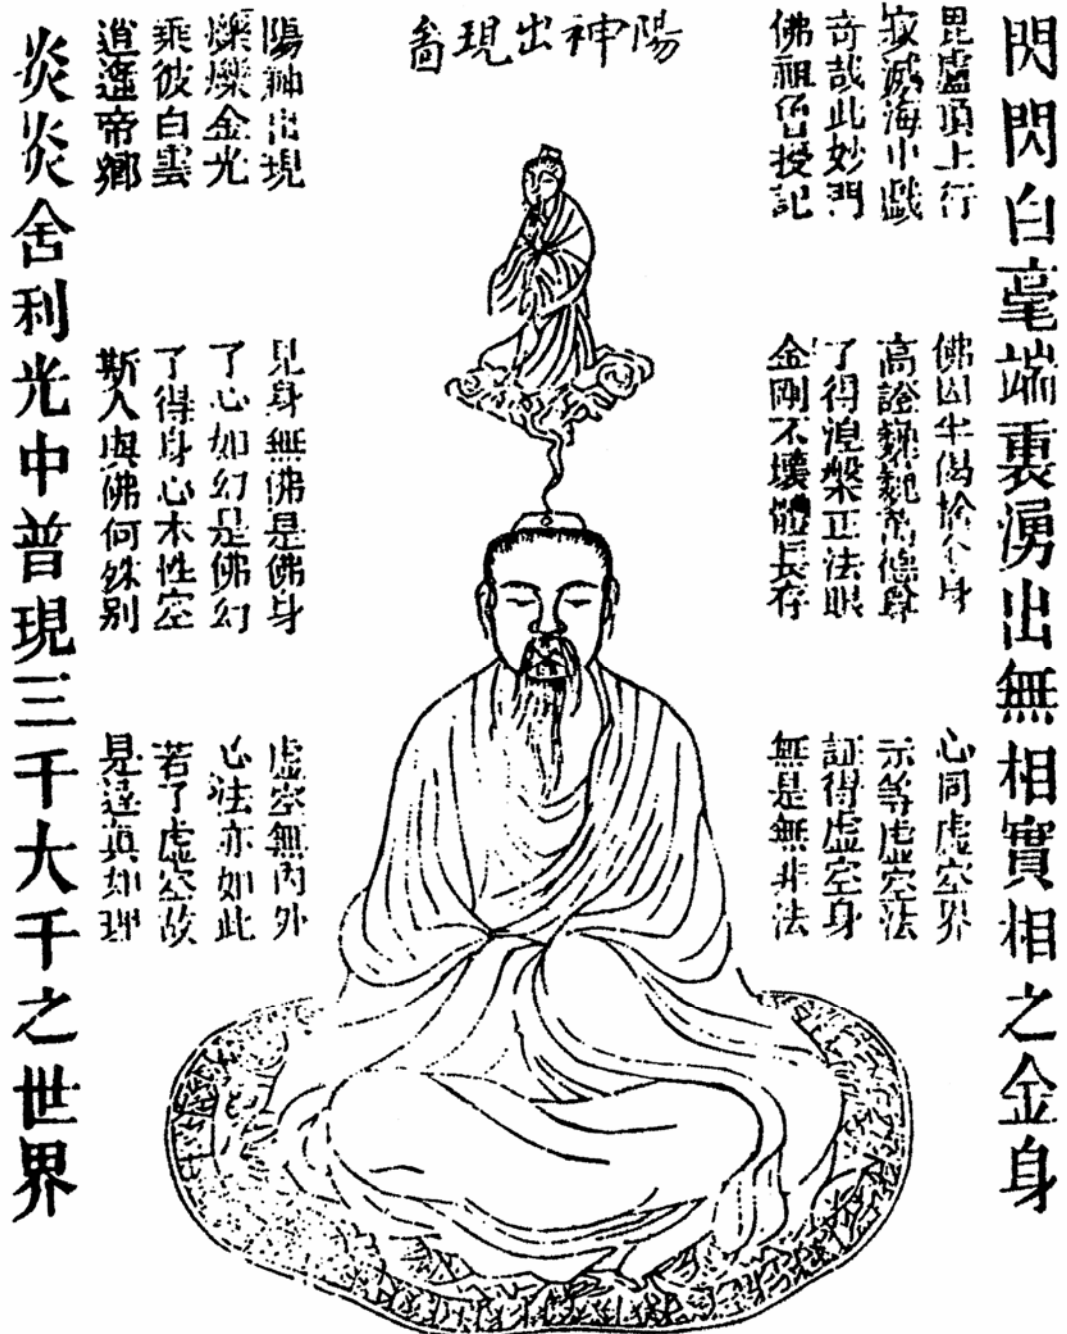 陽神出現啚
閃閃白毫端裏湧出無相實相之金身
毘盧頂上行
寂滅海中戯
奇哉此妙門
佛祖曾授記
佛因半偈捨全身
高證巍巍萬德尊
了得湼槃正法眼
金剛不壞體長存
心同虛空界
示等虛空法
証得虛空身
無是無非法
陽神出現
爍爍金光
乘彼白雲
逍遥帝鄉
見身無佛是佛身
了心如幻是佛幻
了得身心本性空
斯人與佛何殊别
虛空無内外
心法亦如此
若了虛空故
是達真如理
炎炎舍利光中普現三千大千之世界